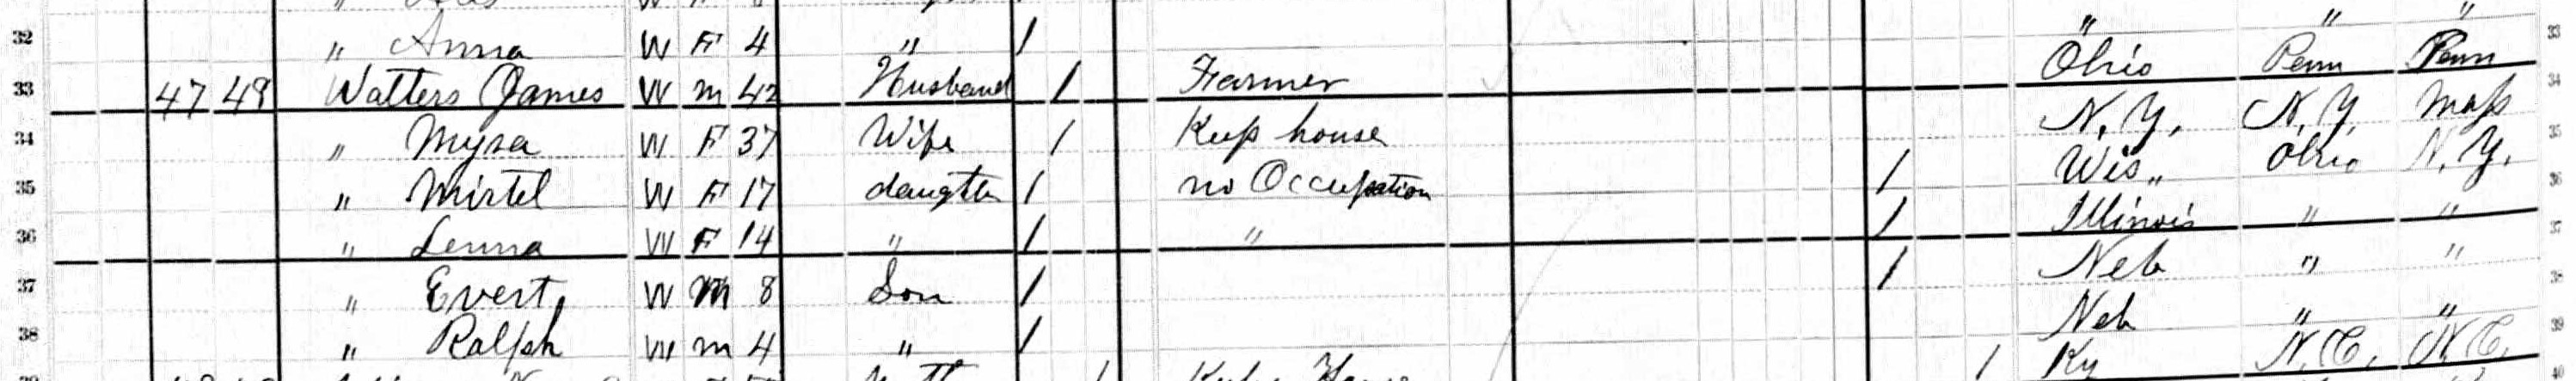 " " "
32 " Anna W F 4 " / 33
33 47 48 Watters James W M 42 Husband / Farmer Ohio Penn Penn 34
34 " Mysa W F 37 Wife / Keep house N.Y. N.Y. Mass 35
35 " Mirtel W F 17 daughter / no Occupation / Wis " Ohio N.Y. 36
36 " Lenna W F 14 " / " / Illinois " " 37
37 " Evert W M 8 Son / / Neb " " 38
38 " Ralph W M 4 " / Neb " " 39
/ / Ky N.C. N.C. 40